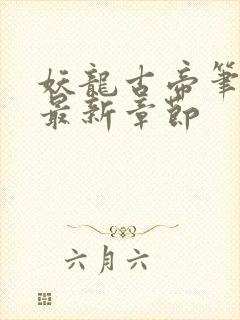 妖龍古帝筆
最新章節
六月六